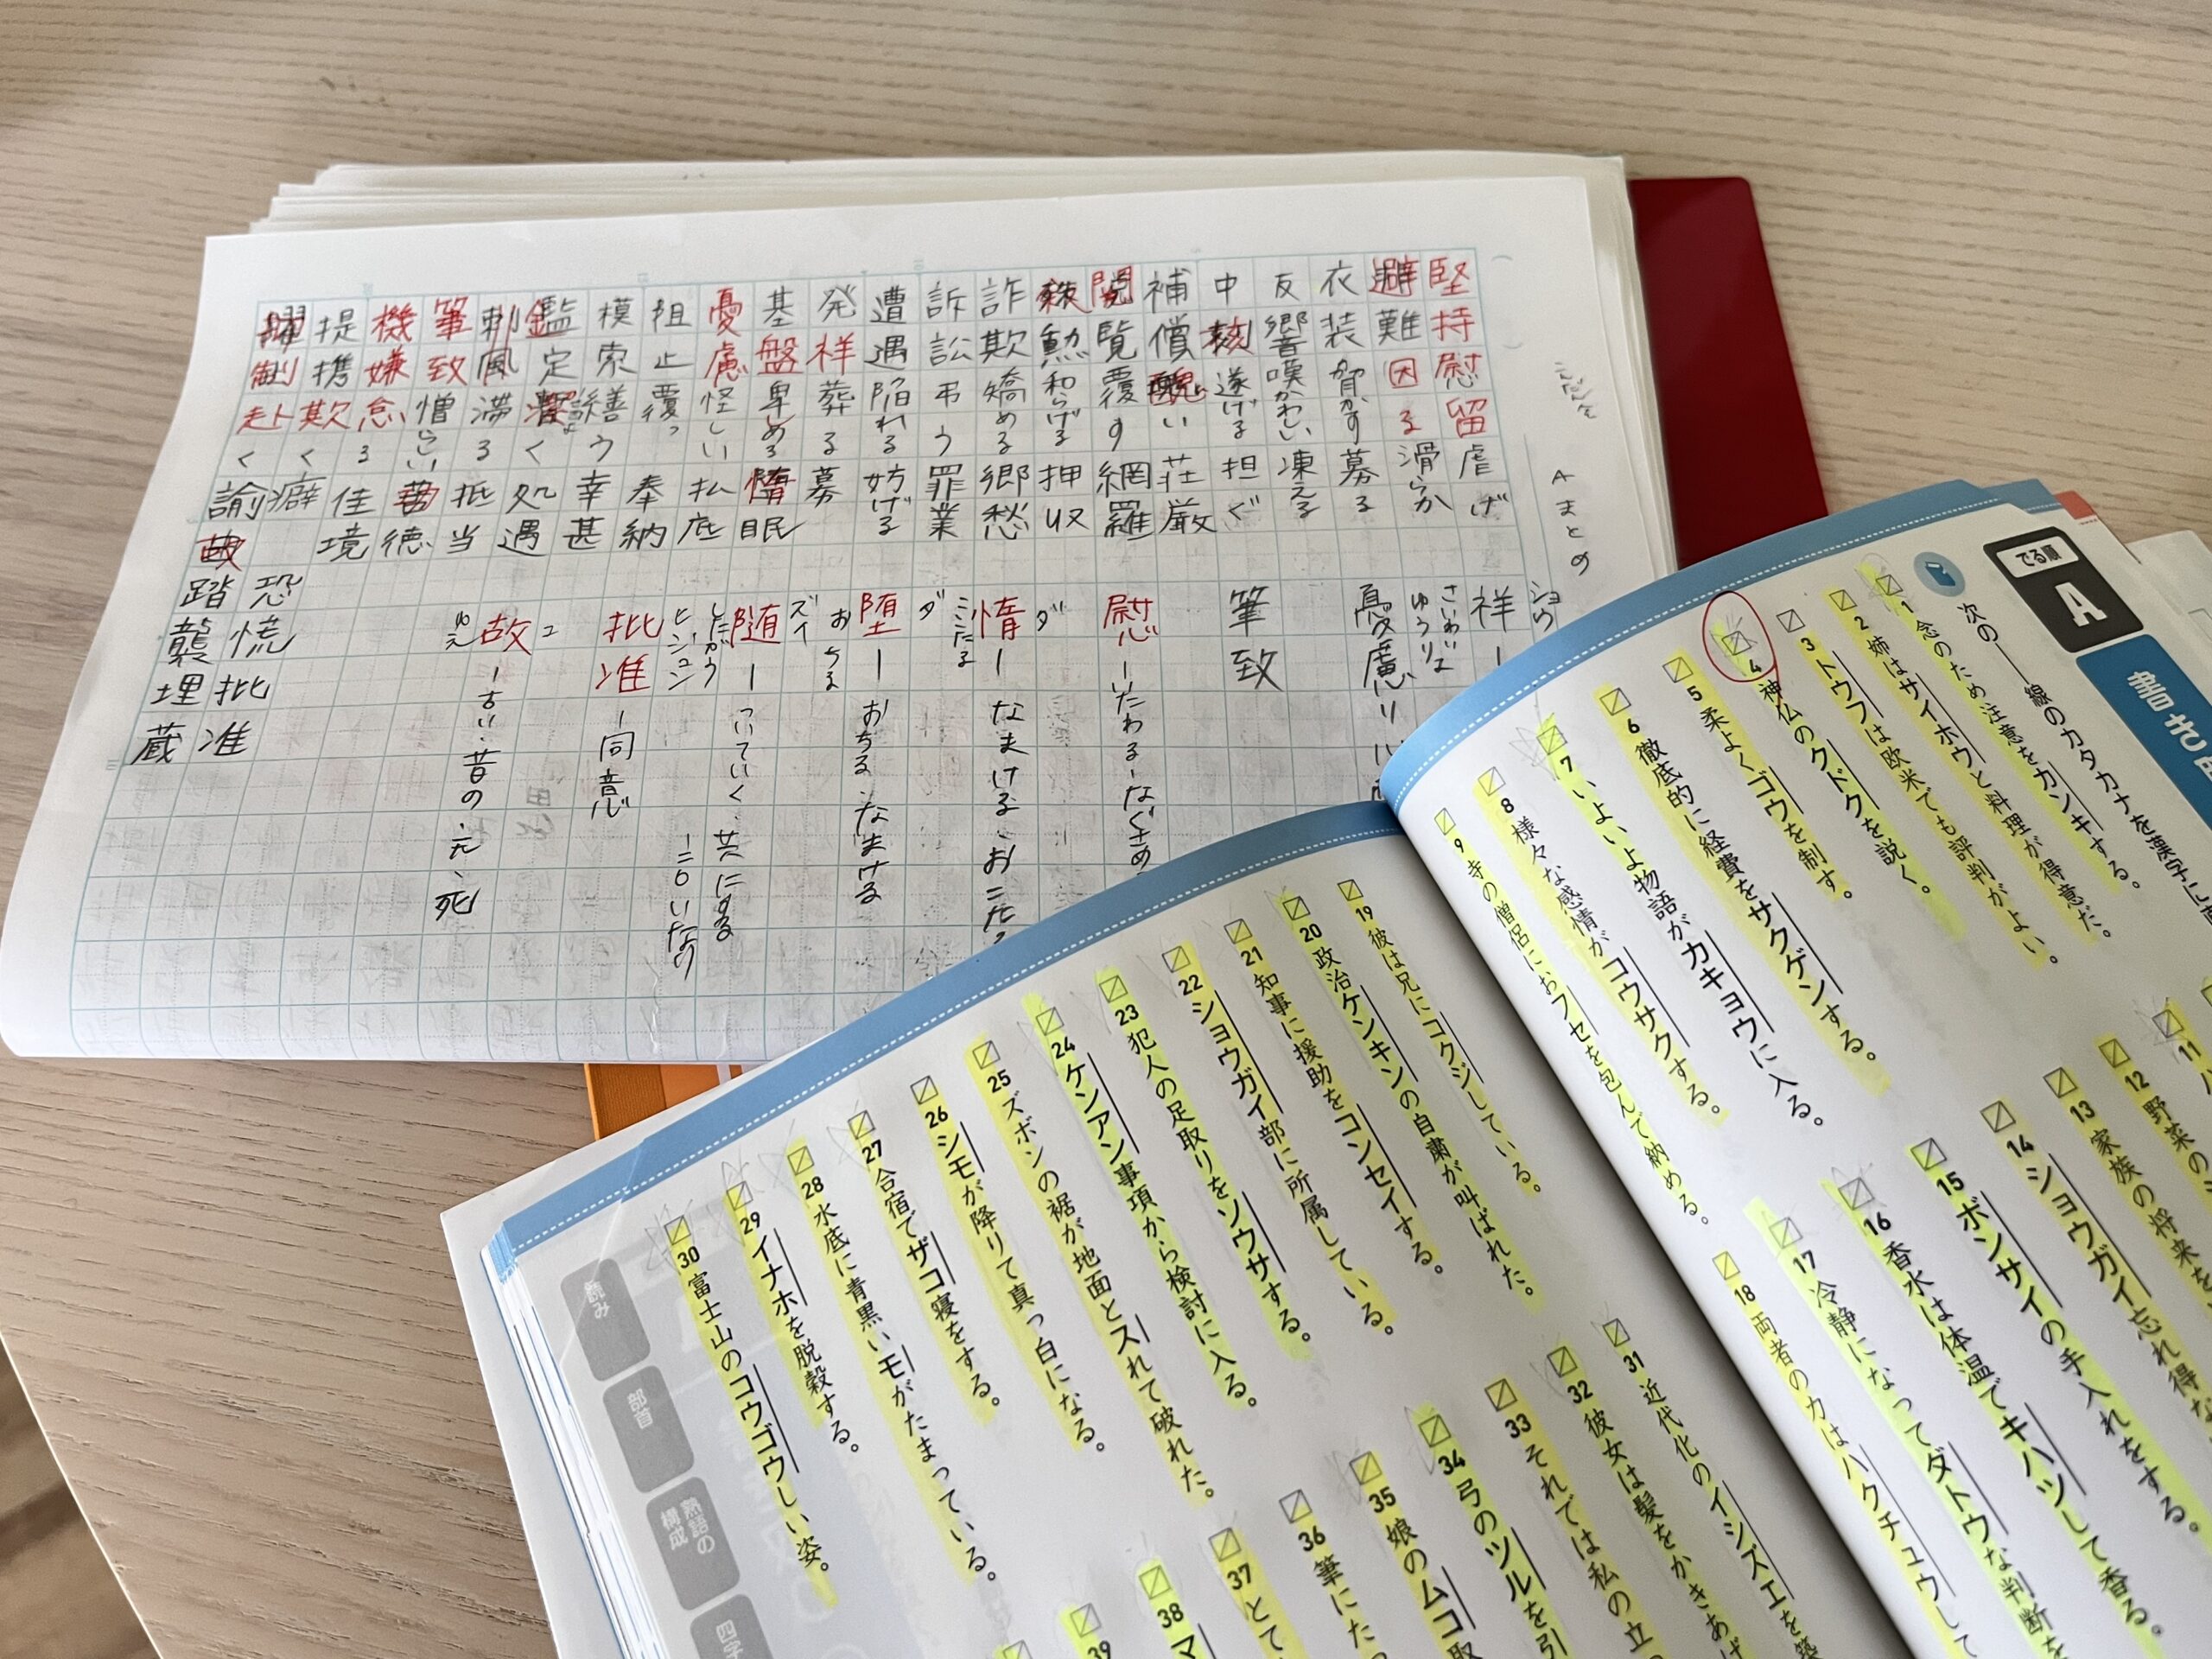 こんだんを
Aまとめ
堅持慰留虐げ
避難因る滑らか
衣装脅かす募る
反響嘆かわしい凍える
中核遂げる担ぐ
補償醜い荘厳
閲覧覆す網羅
殊勲和らげる押収
詐欺矯める郷愁
訴訟弔う罪業
遭遇陥れる妨げる
発祥葬る募
基盤卑しめる惰眠
憂慮怪しい払底
阻止覆っ奉納
模索繕う幸甚
鑑定潔く処遇
刺風滞る抵当
筆致憎らしい徳
機嫌怠る佳境
提携欺く癖
赴く諭
恐慌批准
踏襲埋蔵
祥ー
ショウ
さいわい
憂慮
筆致
慰ーいたわる・なぐさめ
惰ーなまける、おこたる
ダ
おこたる
堕ーおちる、なまける
ダ
おちる
随ーついていく、共にする
ズイ
したがう
批准ー同意
ヒジュン
故ー古い・昔の、元、死
コ
ゆえ
でる順
A
書き
次の――線のカタカナを漢字に
1 念のため注意をカンキする。
2 姉はサイホウと料理が得意だ。
3 トウフは欧米でも評判がよい。
4 神仏のクドクを説く。
5 柔よくゴウを制す。
6 徹底的に経費をサクゲンする。
7 いよいよ物語がカキョウに入る。
8 様々な感情がコウサクする。
9 寺の僧侶におフセを包んで納める。
11
12 野菜の
13 家族の将来を
14 ショウガイ忘れ得な
15 ボンサイの手入れをする。
16 香水は体温でキハツして香る。
17 冷静になってダトウな判断を
18 両者の力はハクチュウして
19 彼は兄にコクジしている。
20 政治ケンキンの自粛が叫ばれた。
21 知事に援助をコンセイする。
22 ショウガイ部に所属している。
23 犯人の足取りをソウサする。
24 ケンアン事項から検討に入る。
25 ズボンの裾が地面とスれて破れた。
26 シモが降りて真っ白になる。
27 合宿でザコ寝をする。
28 水底に青黒いモがたまっている。
29 イナホを脱穀する。
30 富士山のコウゴウしい姿。
31 近代化のイシズエを築
32 彼女は髪をかきあげ
33 それでは私の立
34 弓のツルを引
35 娘のムコ取
36 筆にたっ
37 とて
38 マ
39
読み
部首
熟語の構成
四字